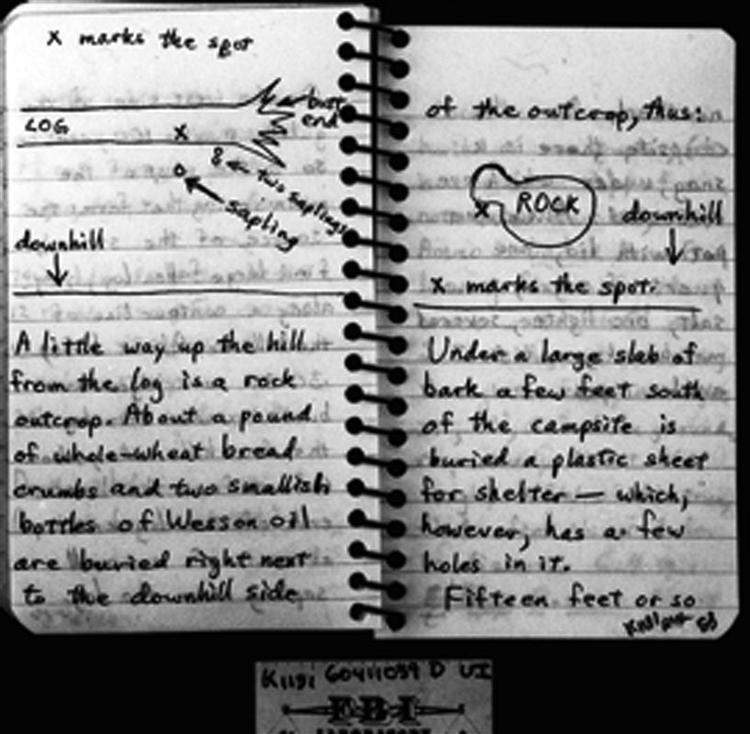 x marks the spot
LOG
x
butt
end
two saplings
sapling
downhill
A little way up the hill
from the log is a rock
outcrop. About a pound
of whole-wheat bread
crumbs and two smallish
bottles of Wesson oil
are buried right next
to the downhill side
of the outcrop, thus:
ROCK
x
downhill
x marks the spot.
Under a large slab of
bark a few feet south
of the campsite is
buried a plastic sheet
for shelter — which,
however, has a few
holes in it.
Fifteen feet or so
FBI
LABORATORY